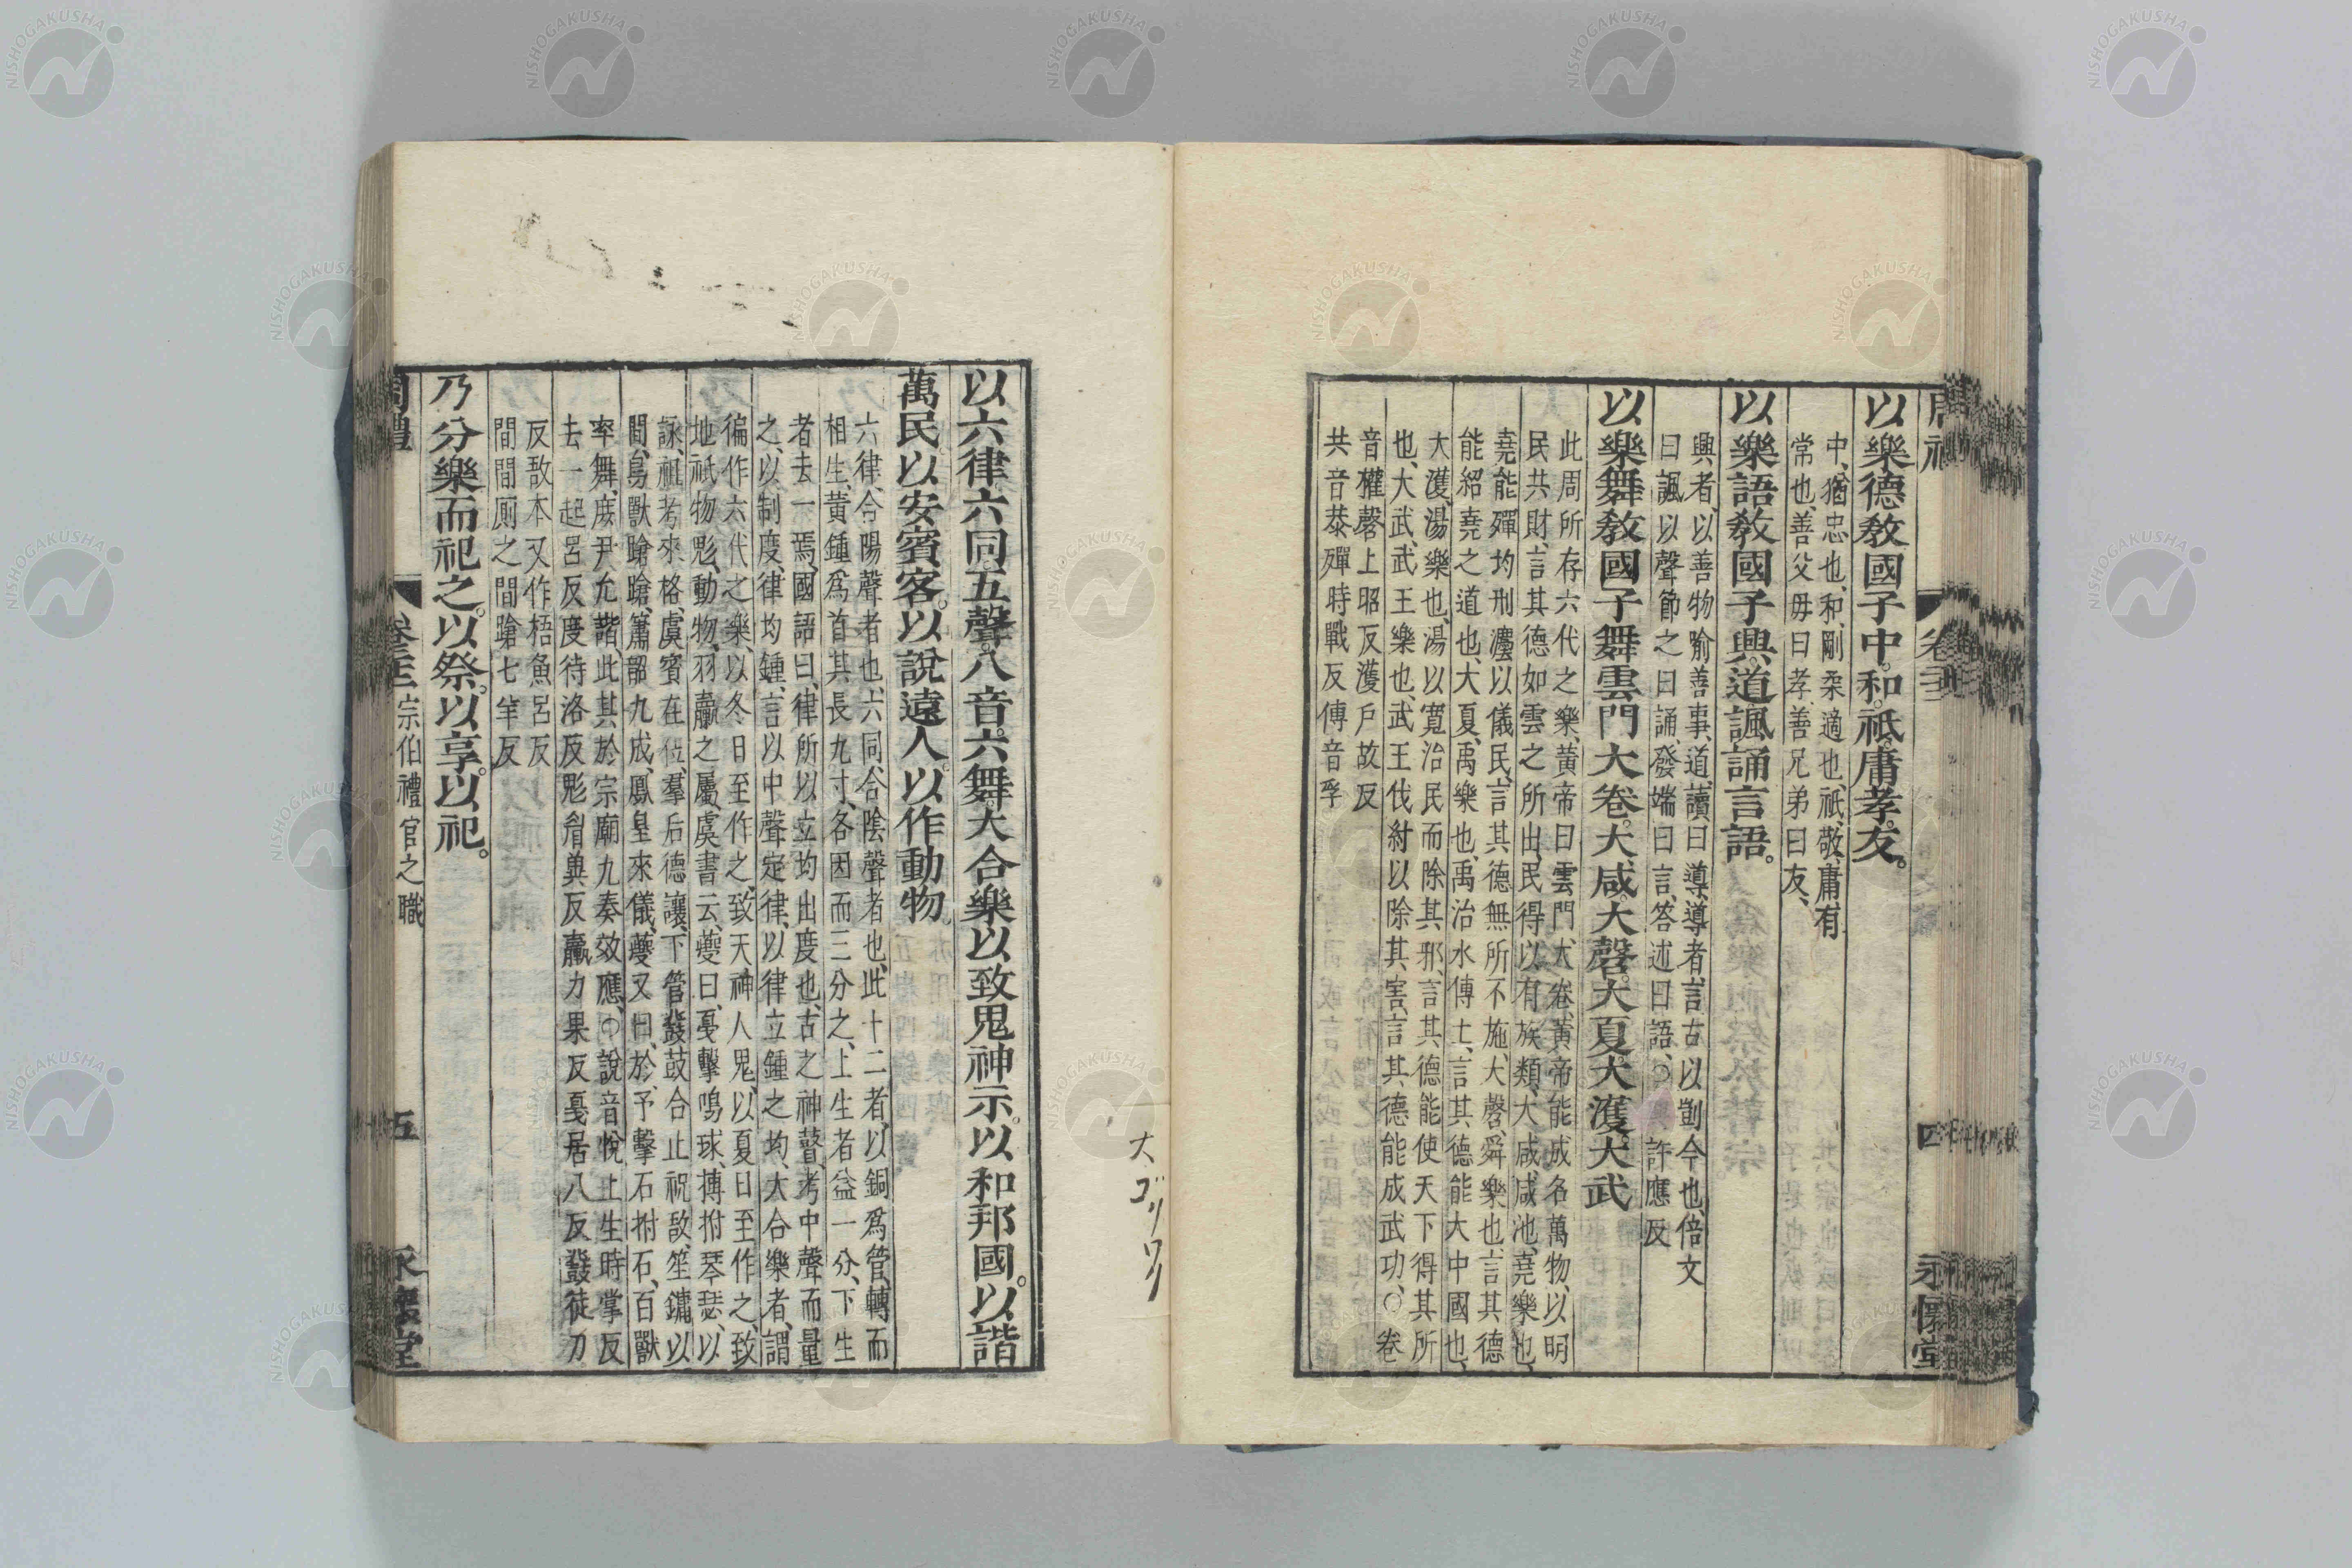 以樂德敎國子中。和。祗。庸孝。友。
中、猶忠也、和、剛柔適也、祗、敬、庸、有
常也、善父母曰孝、善兄弟曰友、
以樂語敎國子興。道諷誦言語。
興者、以善物喩善事、道、讀曰導、導者、言古以剴今也、倍文
曰諷、以聲節之曰誦、發端曰言、答述曰語、○興許應反
以樂舞敎國子舞雲門大卷。大咸。大磬。大夏。大濩。大武
此周所存六代之樂、黃帝曰雲門、大卷、黃帝能成名萬物、以明
民共財、言其德如雲之所出、民得以有族類、大咸、咸池、堯樂也、
堯能殫均刑灋以儀民、言其德無所不施、大磬、舜樂也、言其德
能紹堯之道也、大夏、禹樂也、禹治水傳土、言其德能大中國也、
大濩、湯樂也、湯以寬治民而除其邪、言其德能使天下得其所
也、大武、武王樂也、武王伐紂以除其害、言其德能成武功、○卷
音權磬上昭反濩戶故反
共音恭殫時戰反傅音孚
卷二十二
四
永懷堂
大ゴリワリ
以六律六同。五聲。八音。六舞。大合樂以致鬼神示。以和邦國。以諧
萬民以安賓客。以說遠人。以作動物。
六律、合陽聲者也、六同、合陰聲者也、此十二者、以銅爲管、轉而
相生、黃鍾爲首、其長九寸、各因而三分之、上生者益一分、下生
者去一焉、國語曰、律所以立均出度也、古之神瞽、考中聲而量
之、以制度、律均鍾、言以中聲定律、以律立鍾之均、大合樂者、謂
徧作六代之樂、以冬日至作之、致天神人鬼、以夏日至作之、致
地祇物鬽、動物、羽臝之屬、虞書云、夔曰、戛擊鳴球、搏拊琴瑟、以
詠、祖考來格、虞賓在位、羣后德讓、下管鼗鼓、合止柷敔、笙鏞以
間、鳥獸蹌蹌、簫韶九成、鳳皇來儀、夔又曰、於、予擊石拊石、百獸
率舞、庶尹允諧、此其於宗廟九奏效應、○說音悅上生時掌反
去一起呂反度待洛反鬽眉異反臝力果反戛居八反鼗徒刀
反敔本又作梧魚呂反
間間厠之間蹌七羊反
乃分樂而祀之。以祭。以享。以祀。
周禮
宗伯禮官之職
五
永懷堂